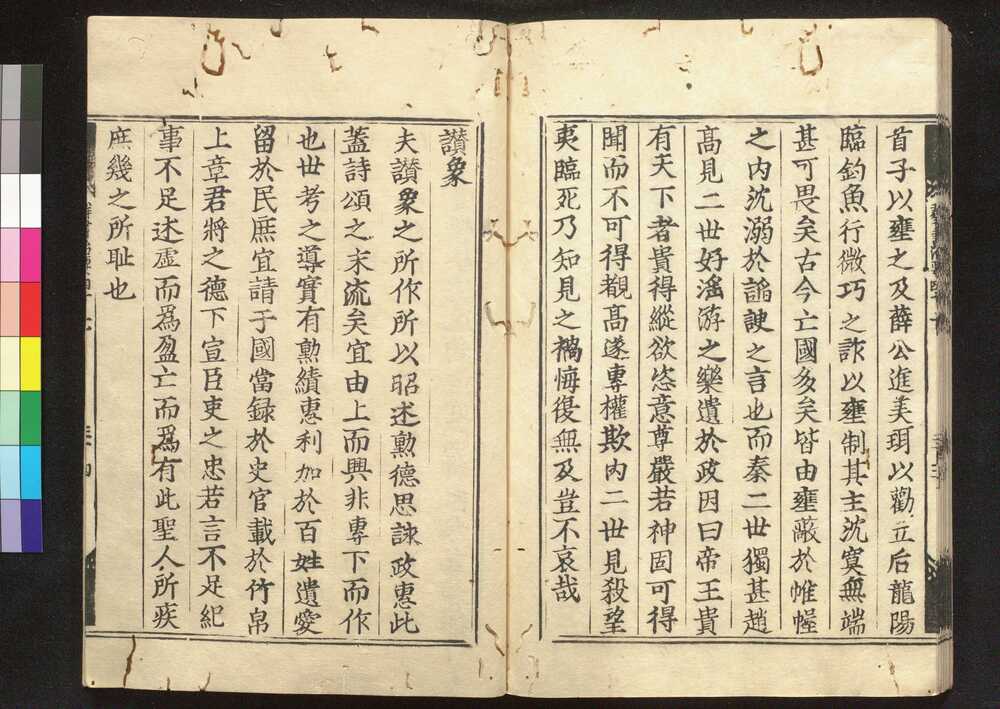 首子以壅之及薛公進美珥以勸立后龍陽
臨釣魚行微巧之詐以壅制其主沈寞無端
甚可畏矣古今亡國多矣皆由壅蔽於帷幄
之内沈溺於諂諛之言也而秦二世獨甚趙
髙見二世好滛游之樂遺於政因曰帝王貴
有天下者貴得縱欲恣意尊嚴若神固可得
聞而不可得覩髙遂專權欺内二世見殺望
夷臨死乃知見之禍悔復無及豈不哀哉
讃象
夫讃象之所作所以昭述勲德思詠政惠此
蓋詩頌之末流矣宜由上而興非專下而作
也世考之導實有勲績惠利加於百姓遺愛
留於民庶宜請于國當録於史官載於竹帛
上章君將之德下宣臣吏之忠若言不足紀
事不足述虚而爲盈亡而爲有此聖人所疾
庶幾之所耻也